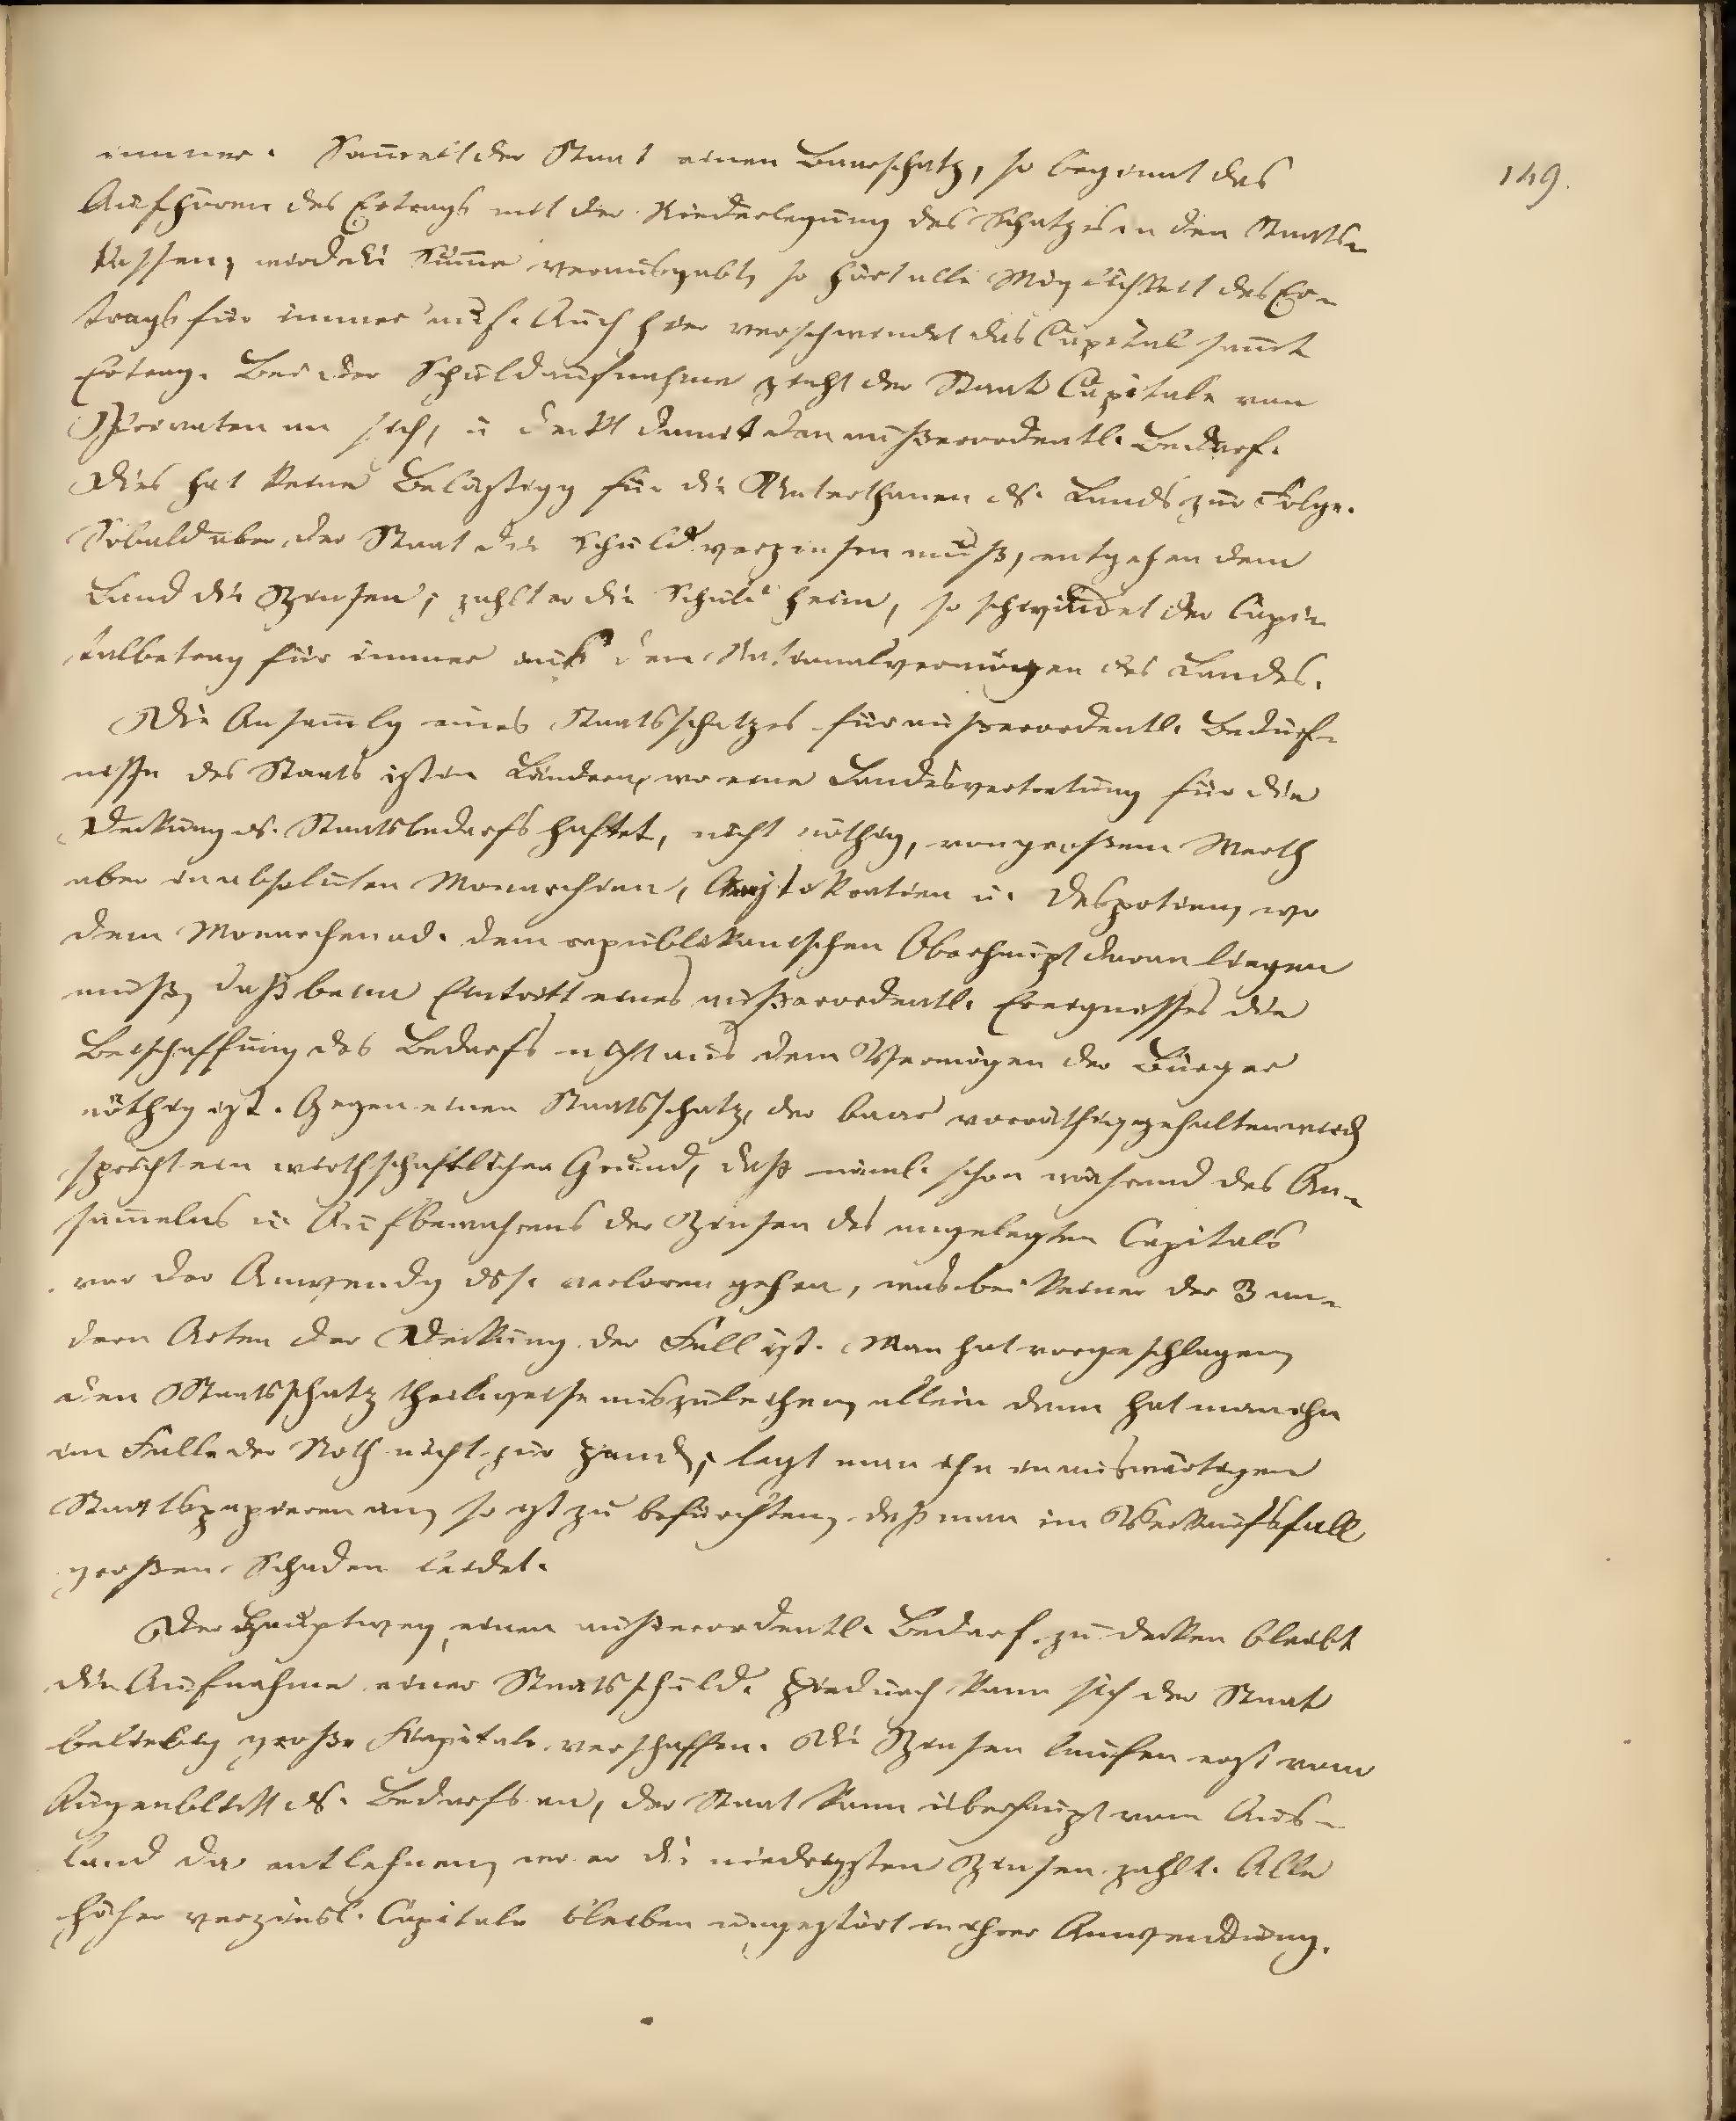 149.
immer. Sam̄elt der Staat einen Baarschatz, so beginnt das
Aufhören des Ertrags mit der Niederlegung des Schatzes in den Staats-
kassen, wird die Sum̄e verausgabt, so hört alle Möglichkeit des Er-
trags für immer auf. Auch hier verschwindet das Capital sam̄t
Ertrag. Bei der Schuldaufnahme zieht der Staat Capitale von
Privaten an sich, u deckt damit den außerordentl. Bedarf.
Dies hat keine Belästigg für die Unterthanen ds. Lands zur Folge.
Sobald aber der Staat die Schuld verzinsen muß, entgehen dem
Land die Zinsen; zahlt er die Schuld heim, so schwindet der Capi-
talbetrag für immer aus dem Nationalvermögen des Landes.
Die Ansam̄lg eines Staatsschatzes für außerordentl. Bedürf-
nisse des Staats ist in Ländern, wo eine Landesvertretung für die
Deckung ds. Staatsbedarfs haftet, nicht nöthig, von großem Werth
aber in absoluten Monarchien, Aristokratien u. Despotien, wo
dem Monarchen od. dem republikanischen Oberhaupt daran liegen
muß, daß beim Eintritt eines außerordentl. Ereignisses die
Beischaffung des Bedarfs nicht aus dem Vermögen der Bürger
nöthig ist. Gegen einen Staatsschatz, der baar vorräthig gehalten wird
spricht ein wirthschaftlicher Grund, daß näml. schon während des An-
sam̄elns u. Aufbewahrens der Zinsen des angelegten Capitals
vor der Anwendg dss. verloren gehen, was bei keiner der 3 an-
dern Arten der Deckung der Fall ist. Man hat vorgeschlagen,
den Staatsschatz theilweise auszuleihen, allein dann hat man ihn
im Falle der Noth nicht zur Hand; legt man ihn in auswärtigen
Staatspapieren an, so ist zu befürchten, daß man im Verkaufsfall
großen Schaden leidet.
Der Hauptweg, einen außerordentl. Bedarf zu decken bleibt
die Aufnahme einer Staatsschuld. Hiedurch kann sich der Staat
beliebig große Kapitale verschaffen. Die Zinsen laufen erst vom
Augenblick ds. Bedarfs an, der Staat kann überhaupt vom Aus-
land da entlehnen, wo er die niedrigsten Zinsen zahlt. Alle
höher verzinsl. Capitale bleiben ungestört in ihrer Anwendung.